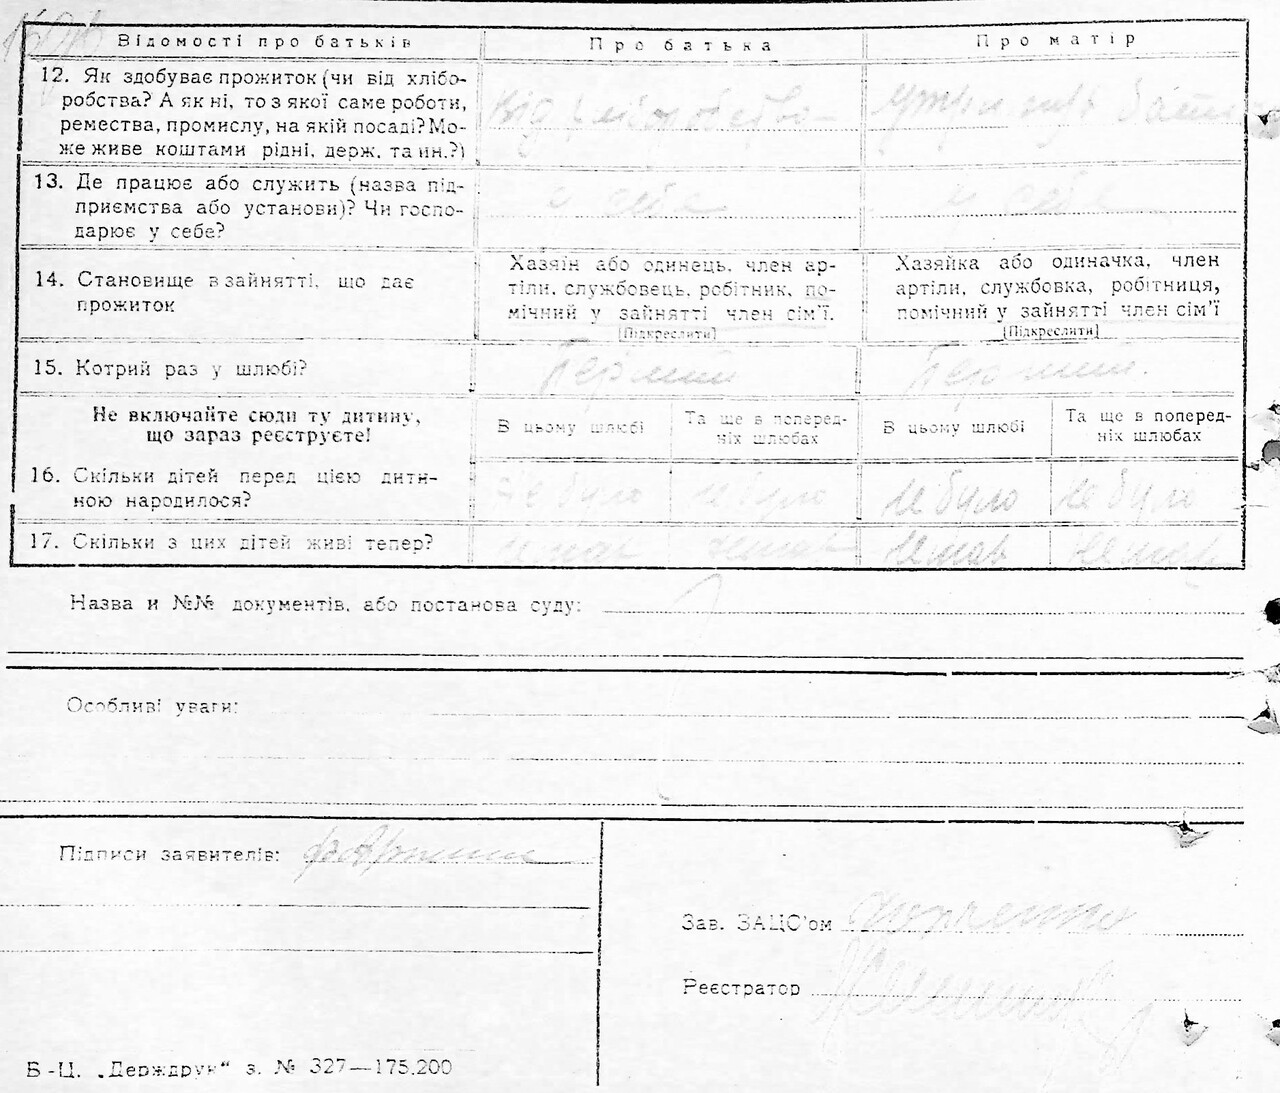 Відомості про батьків
Про батька
Про матір
12. Як здобуває прожиток (чи від хлібо-
робства? А як ні, то з якої саме роботи,
ремества, промислу, на якій посаді? Мо-
же живе коштами рідні, держ. та ин.?)
від хліборобство
утри
13. Де працює або служить (назва під-
приємства або установи)? Чи госпо-
дарює у себе?
у себе
у себе
14. Становище в зайнятті, що дає
прожиток
Хазяїн або одинець, член ар-
тіли, службовець, робітник, по-
мічний у зайнятті член сім'ї.
[Підкреслити]
Хазяйка або одиначка, член
артіли, службовка, робітниця,
помічний у зайнятті член сім'ї
[Підкреслити]
15. Котрий раз у шлюбі?
Перший
Перший.
Не включайте сюди ту дитину,
що зараз реєструєте!
В цьому шлюбі
Та ще в поперед-
ніх шлюбах
В цьому шлюбі
Та ще в поперед-
ніх шлюбах
16. Скільки дітей перед цією дити-
ною народилося?
не було
не було
не було
не було
17. Скільки з цих дітей живі тепер?
немає
немає
немає
немає
Назва и №№ документів, або постанова суду:
Особливі уваги:
Підписи заявителів:
Зав. ЗАЦС'ом
Реєстратор
Б-Ц. „Держдрук“ з. № 327—175.200